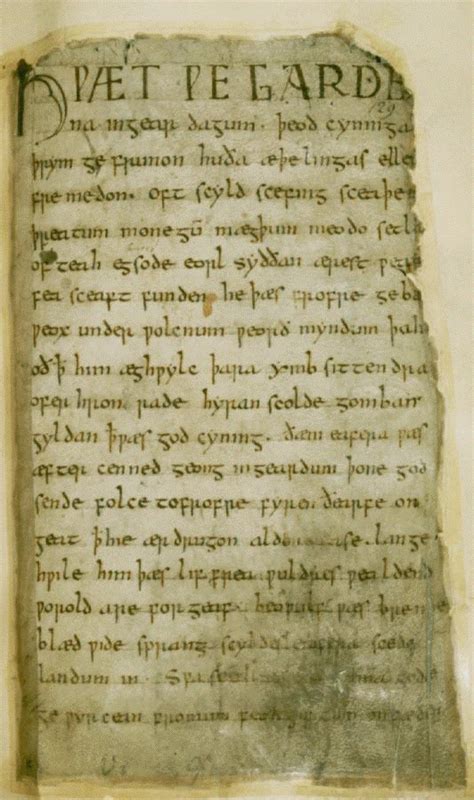 HǷÆT ǷE GARDE
129
na ingear dagum. þeod cyninga
þrym ge frunon huða æþelingas elle
fremedon. oft scyld scefing sceaþe
þreatum monegū mægþum meodo setla
of teah egsode eorl syððan ærest ƿear
fea sceaft funden he þæs frofre geba
ƿeox under ƿolcnum ƿeorð myndum þah
oð ꝥ him æghƿylc þara ymb sittendra
ofer hron rade hyran scolde gomban
gyldan ꝥ ƿæs god cyning. ðæm eafera ƿæs
æfter cenned geong ingeardum þone god
sende folce tofrofre fyren ðearfe on
geat ꝥ hie ær drugon aldor ase. lange
hƿile him þæs lif frea ƿuldres ƿealdend
ƿorold are for geaf. beoƿulf ƿæs breme
blæd ƿide sprang scyldes eafera scede
landum in. Sƿa sceal uma gode
ge ƿyrcean fromum feoh giftum on fæder